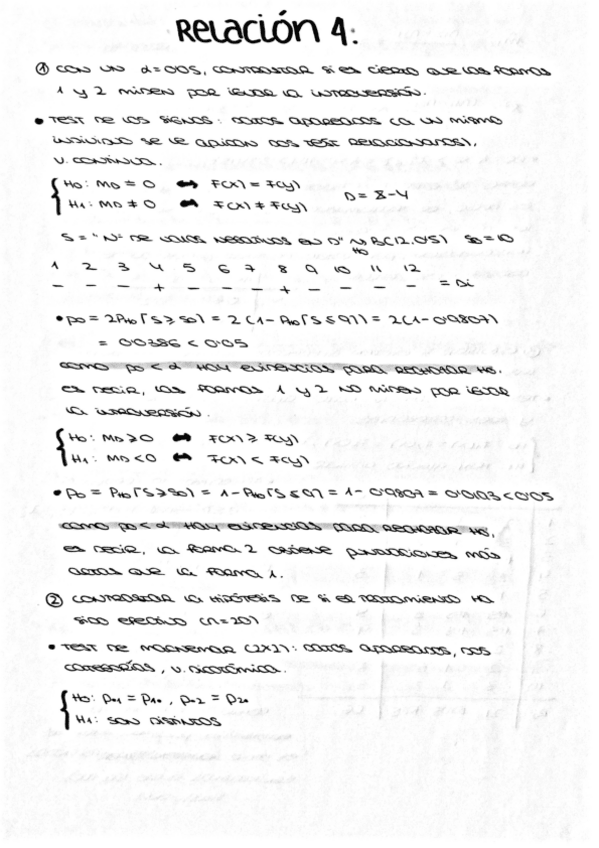 Relación 4:
① CON UN α=0'05, CONTRASTAR SI ES CIERTO QUE LAS FORMAS
1 y 2 MIDEN POR IGUAL LA INTROVERSIÓN.
• TEST DE LOS SIGNOS: DATOS APAREADOS (A UN MISMO
INDIVIDUO SE LE APLICAN DOS TEST RELACIONADOS),
V. CONTINUA.
H0: MD = 0 ⟺ F(X) = F(Y)
H1: MD ≠ 0 ⟺ F(X) ≠ F(Y)
D = X - Y
S = "Nº DE VALORES NEGATIVOS EN D" ~H0 B(12,0'5) S0=10
1 2 3 4 5 6 7 8 9 10 11 12
- - - + - - - + - - - - = Di
• p0 = 2PH0[S≥S0] = 2(1-PH0[S≤9]) = 2(1-0'9807)
= 0'0386 < 0'05
COMO p0 < α HAY EVIDENCIAS PARA RECHAZAR H0,
ES DECIR, LAS FORMAS 1 y 2 NO MIDEN POR IGUAL
LA INTROVERSIÓN.
H0: MD ≥ 0 ⟺ F(X) ≥ F(Y)
H1: MD < 0 ⟺ F(X) < F(Y)
• p0 = PH0[S≥S0] = 1-PH0[S≤9] = 1-0'9807 = 0'0193 < 0'05
COMO p0 < α HAY EVIDENCIAS PARA RECHAZAR H0,
ES DECIR, LA FORMA 2 OBTIENE PUNTUACIONES MÁS
ALTAS QUE LA FORMA 1.
② CONTRASTAR LA HIPÓTESIS DE SI EL TRATAMIENTO HA
SIDO EFECTIVO (n=20)
• TEST DE MACNEMAR (2X2): DATOS APAREADOS, DOS
CATEGORÍAS, V. DICOTÓMICA.
H0: p.1 = p1. , p.2 = p2.
H1: SON DISTINTOS